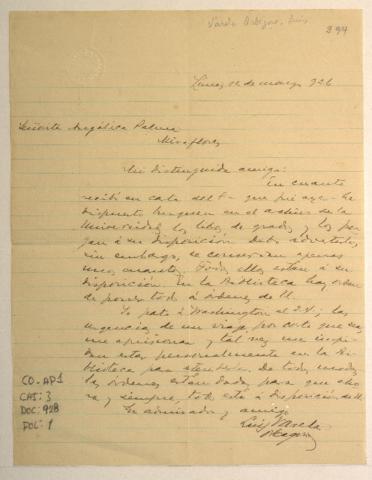 Varela Orbegoso, Luis
394
Lima, 12 de marzo 926
Señorita Angélica Palma
Miraflores
Mi distinguida amiga:
En cuanto
recibí su carta del 7 - que fué ayer - he
dispuesto busquen en el archivo de la
Universidad los libros de grados y los pongan
á su disposición. Debo advertirle,
sin embargo, se conservan apenas
unos cuantos. Todos ellos están á su
disposición. En la Biblioteca hay orden
de poner todo á órdenes de U.
Yo parto á Washington el 24; las
urgencias de un viaje, por corto que sea,
me aprisiona y tal vez me impidan
estar personalmente en la Biblioteca
para atenderla. De todos modos
las órdenes están dadas para que ahora
y siempre, todo esté á disposición de U.
Su admirador y amigo
Luis Varela
Orbegoso
CO-AP1
CAJ: 3
DOC: 928
FOL: 1